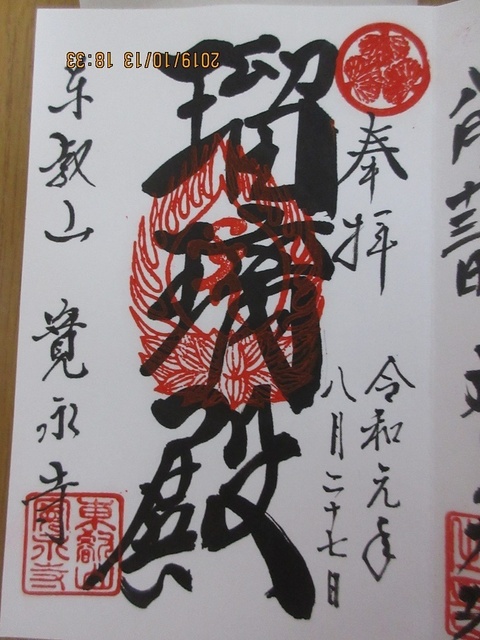 奉拝
令和元年
八月二十七日
瑠璃殿
東叡山 寛永寺
東叡山
寛永寺
2019/10/13 18:33